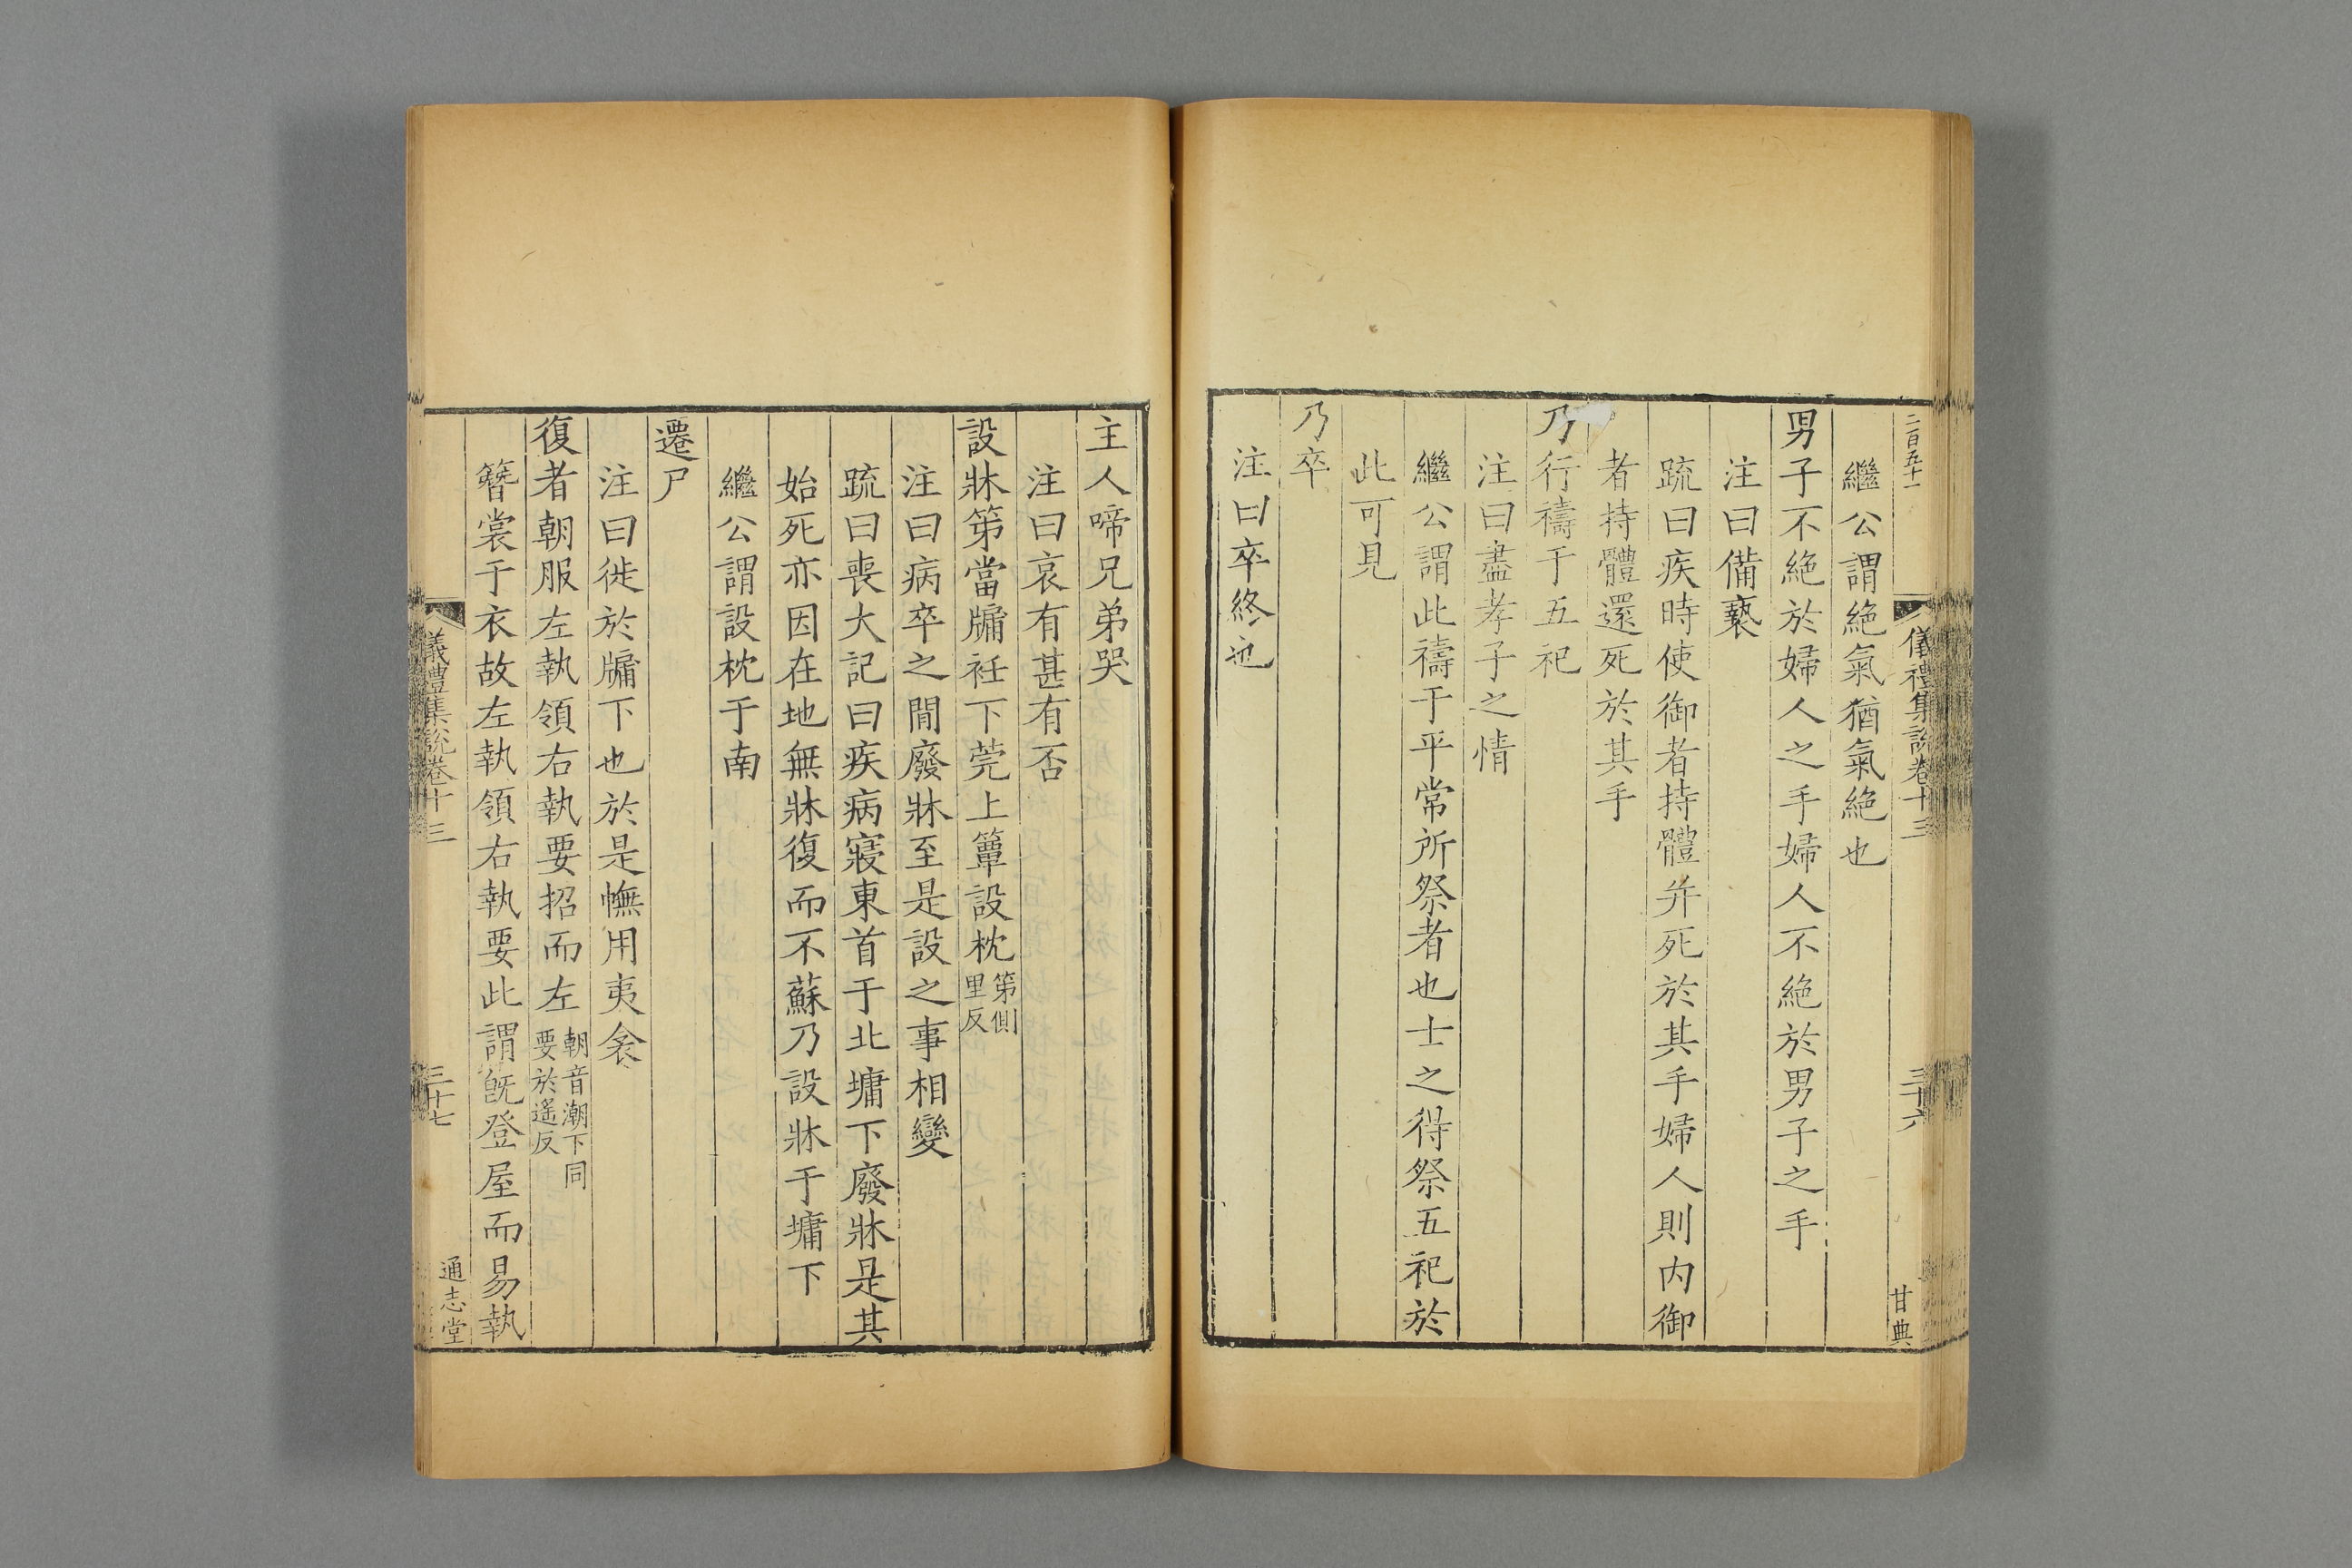 二百五十一
儀禮集說卷十三
三十六
甘典
繼公謂絶氣猶氣絶也
男子不絶於婦人之手婦人不絶於男子之手
注曰備褻
疏曰疾時使御者持體并死於其手婦人則内御
者持體還死於其手
乃行禱于五祀
注曰盡孝子之情
繼公謂此禱于平常所祭者也士之得祭五祀於
此可見
乃卒
注曰卒終也
主人啼兄弟哭
注曰哀有甚有否
設牀笫當牖衽下莞上簟設枕
笫側
里反
注曰病卒之間廢牀至是設之事相變
疏曰喪大記曰疾病寢東首于北墉下廢牀是其
始死亦因在地無牀復而不蘇乃設牀于墉下
繼公謂設枕于南
遷尸
注曰徙於牖下也於是幠用夷衾
復者朝服左執領右執要招而左
朝音潮下同
要於遥反
簪裳于衣故左執領右執要此謂旣登屋而易執
儀禮集說卷十三
三十七
通志堂